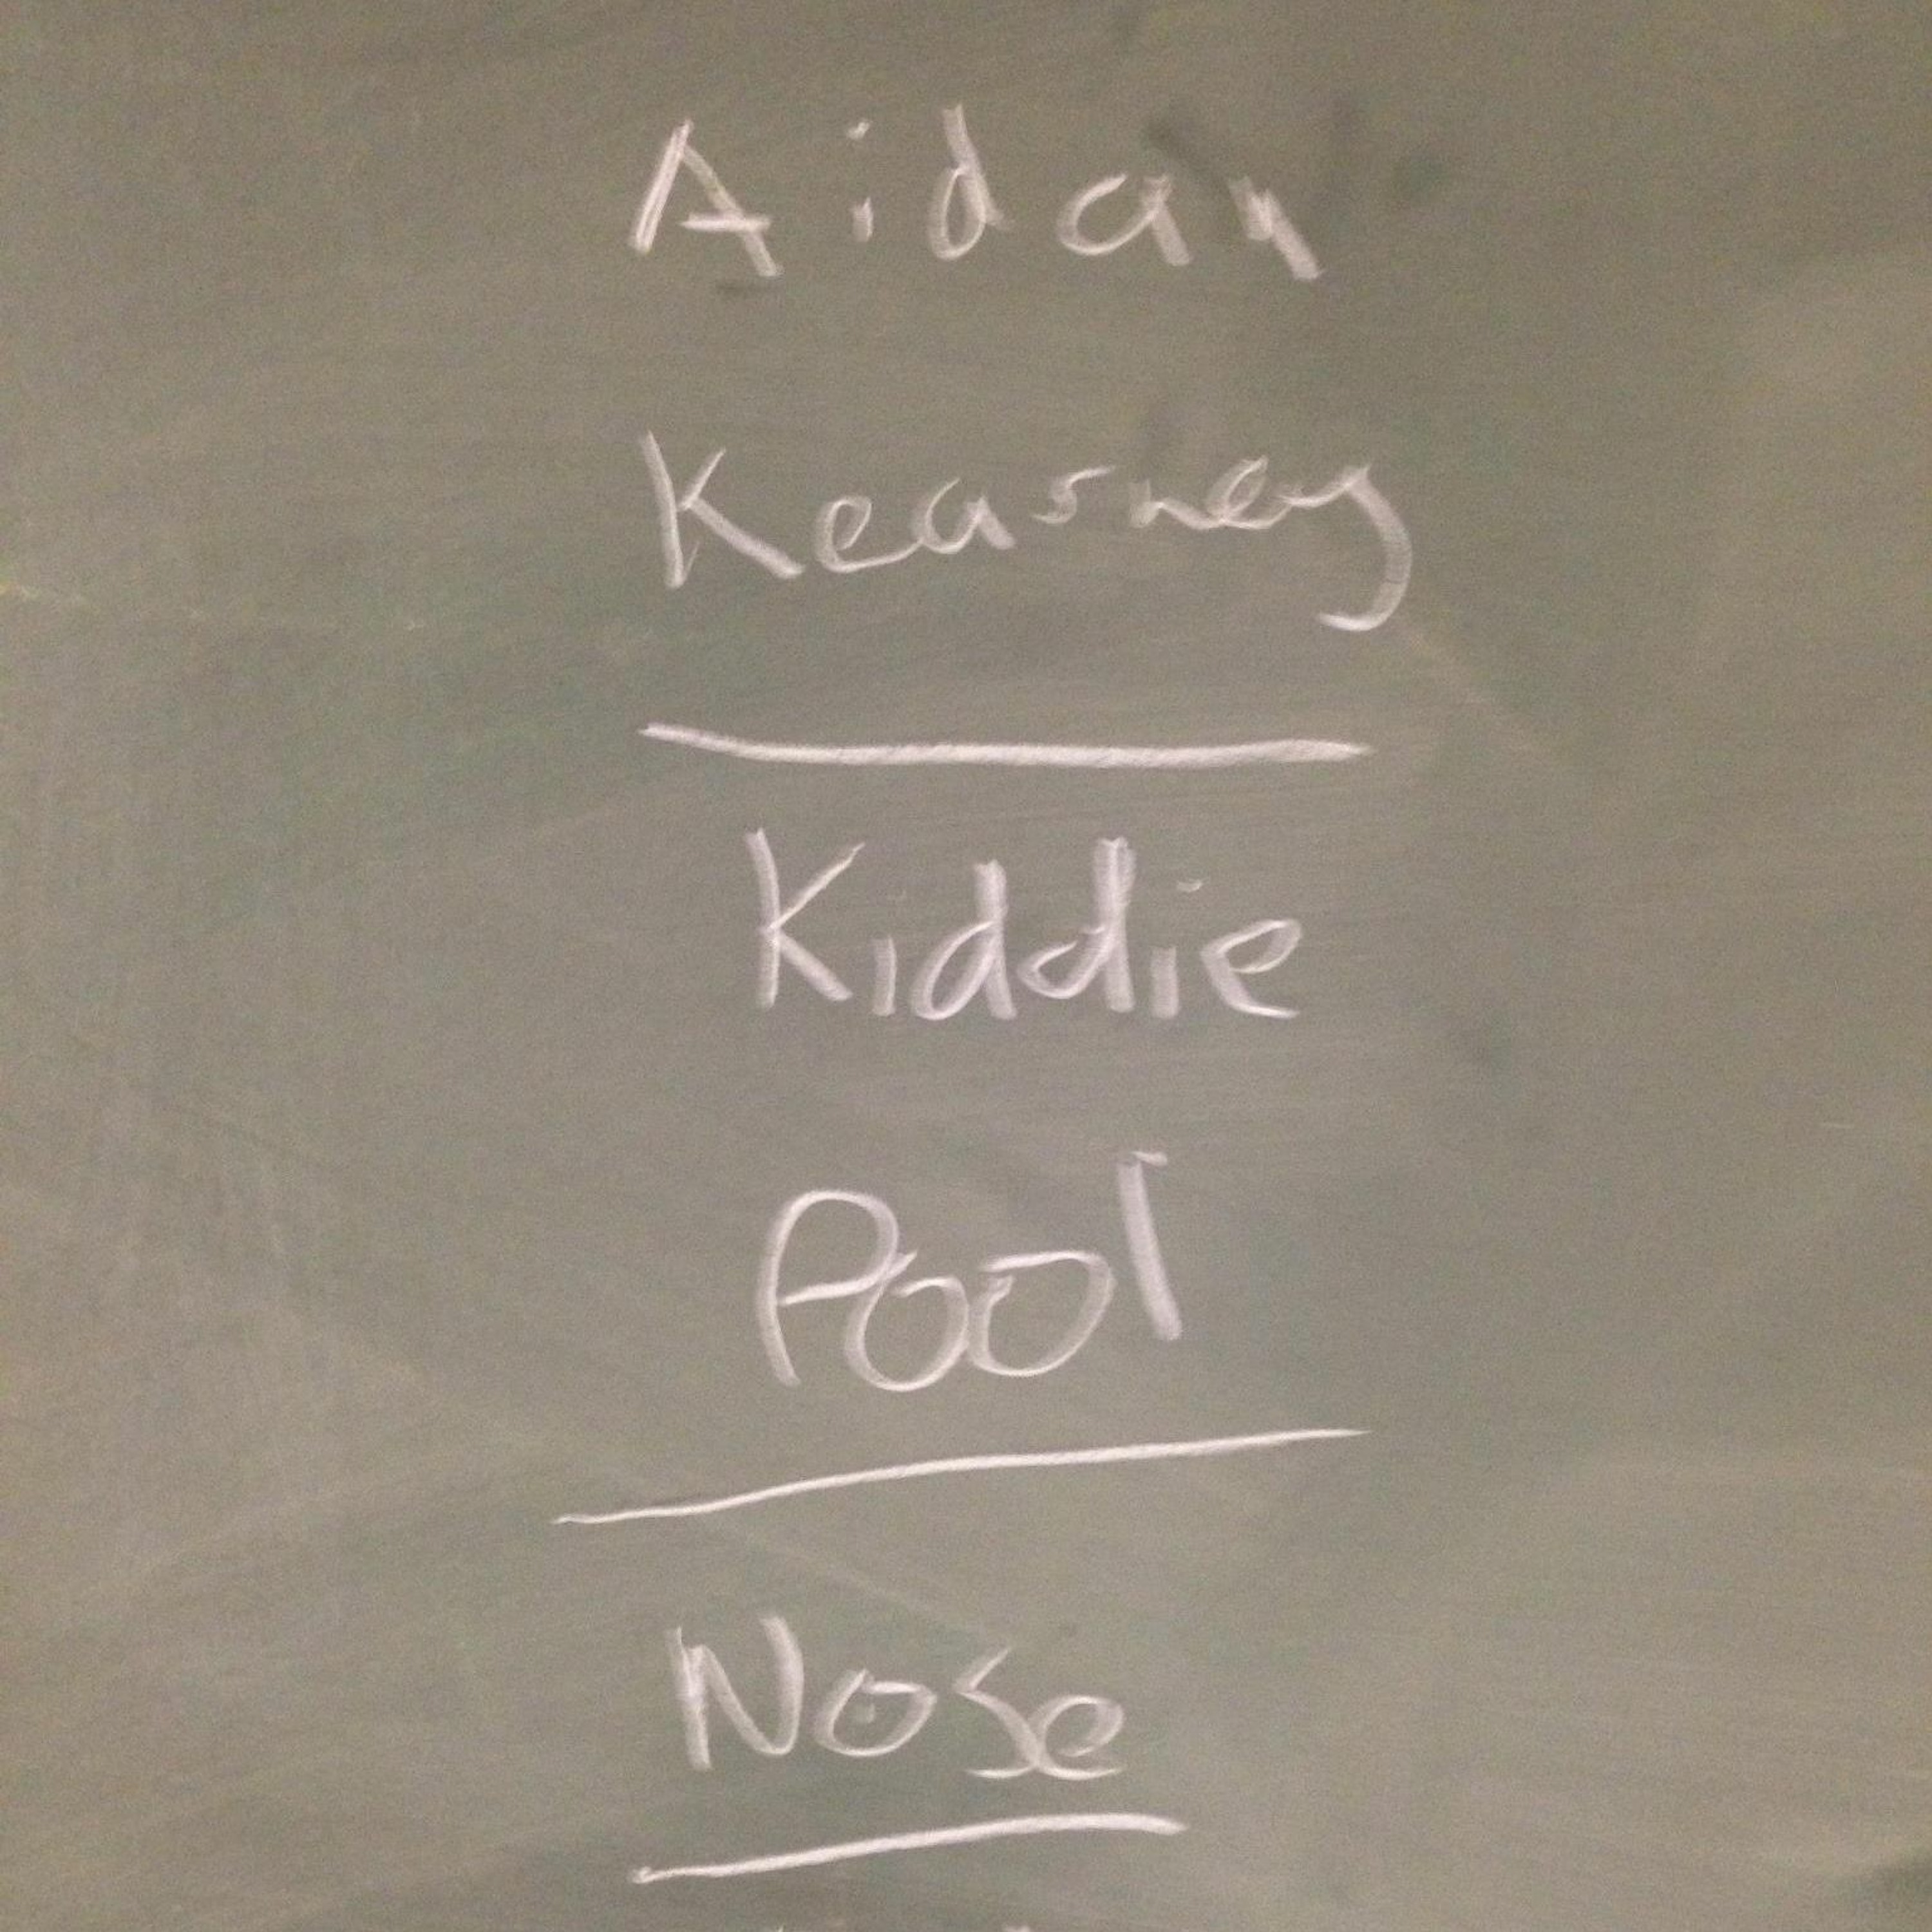 Aidan
Kearney
Kiddie
Pool
Nose